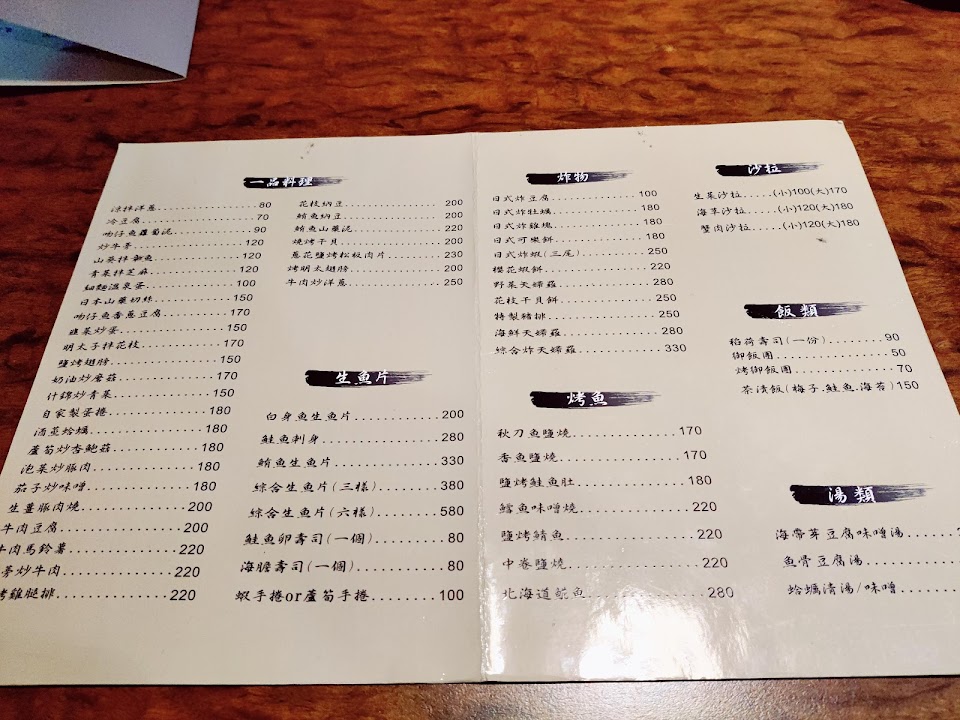 一品料理
涼拌洋蔥 80
冷豆腐 70
吻仔魚蘿蔔泥 90
炒牛蒡 120
山葵拌 120
青菜拌芝麻 120
細麵溫泉蛋 100
日本山藥切絲 150
吻仔魚香蔥豆腐 170
韭菜炒蛋 150
明太子拌花枝 170
鹽烤翅膀 150
奶油炒蘑菇 170
什錦炒青菜 150
自家製蛋捲 180
酒蒸蛤蠣 180
蘆筍炒杏鮑菇 180
泡菜炒豚肉 180
茄子炒味噌 180
生薑豚肉燒 200
牛肉豆腐 200
牛肉馬鈴薯 220
蒡炒牛肉 220
烤雞腿排 220
花枝納豆 200
鮪魚納豆 200
鮪魚山藥泥 220
燒烤干貝 200
蔥花鹽烤松板肉片 230
烤明太翅膀 200
牛肉炒洋蔥 250
生魚片
白身魚生魚片 200
鮭魚刺身 280
鮪魚生魚片 330
綜合生魚片(三樣) 380
綜合生魚片(六樣) 580
鮭魚卵壽司(一個) 80
海膽壽司(一個) 80
蝦手捲or蘆筍手捲 100
炸物
日式炸豆腐 100
日式炸牡蠣 180
日式炸雞塊 180
日式可樂餅 180
日式炸蝦(三尾) 250
櫻花蝦餅 220
野菜天婦羅 280
花枝干貝餅 250
特製豬排 250
海鮮天婦羅 280
綜合炸天婦羅 330
烤魚
秋刀魚鹽燒 170
香魚鹽燒 170
鹽烤鮭魚肚 180
鱈魚味噌燒 220
鹽烤鯖魚 220
中卷鹽燒 220
北海道魚 280
沙拉
生菜沙拉 (小)100(大)170
海草沙拉 (小)120(大)180
蟹肉沙拉 (小)120(大)180
飯類
稻荷壽司(一份) 90
御飯團 50
烤御飯團 70
茶漬飯(梅子.鮭魚.海苔) 150
湯類
海帶芽豆腐味噌湯
魚骨豆腐湯
蛤蠣清湯/味噌